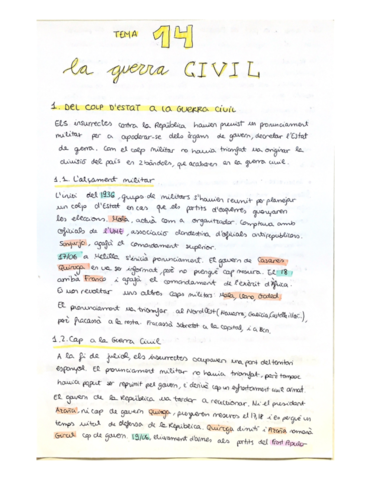 TEMA 14
la guerra CIVIL
1. DEL COLP D'ESTAT A LA GUERRA CIVIL
ELS insurrectes contra la República havien previst un pronunciament
militar per a apoderar-se dels òrgans de govern, decretar l'Estat
de guerra. Com el colp militar no havia triomfat va originar la
divisió del país en 2 bàndols, que acabaren en la guerra civil.
1.1. L'alçament militar
L'inici del 1936, grups de militars s'havien reunit per planejar
un colp d'Estat en cas que els partits d'esquerres guanyaren
les eleccions. Mola, actuà com a organitzador
oficials de l'UME, associació clandestina d'oficials antirepublicans.
Sanjurjo, agafà el comandament superior.
17/06 a Melilla s'inicià pronunciament. El govern de Casares
Quiroga en va ser informat, però no prengué cap mesura. El 18
arribà Franco i agafà el comandament de l'exèrcit d'Àfrica.
uns altres caps militars Mola, Llano,
El pronunciament va triomfar, al Nord
però fracassà a la resta. Fracassà sobretot a la capital, i a Bcn.
1.2. Cap a la Guerra Civil
A la fi de juliol, els insurrectes ocupaven una part del territori
espanyol. El pronunciament militar no havia triomfat, però tampoc
havia pogut ser reprimit pel govern, i derivà cap un enfrontament civil armat.
El govern de la República va tardar a reaccionar. Ni el president
Azaña, ni cap de govern Quiroga, prengueren mesures el 17,18 i es pergué un
temps vital de defensa de la República. Quiroga dimití i Azaña nomenà
Giral cap de govern. 19/06, als partits del Front Popular